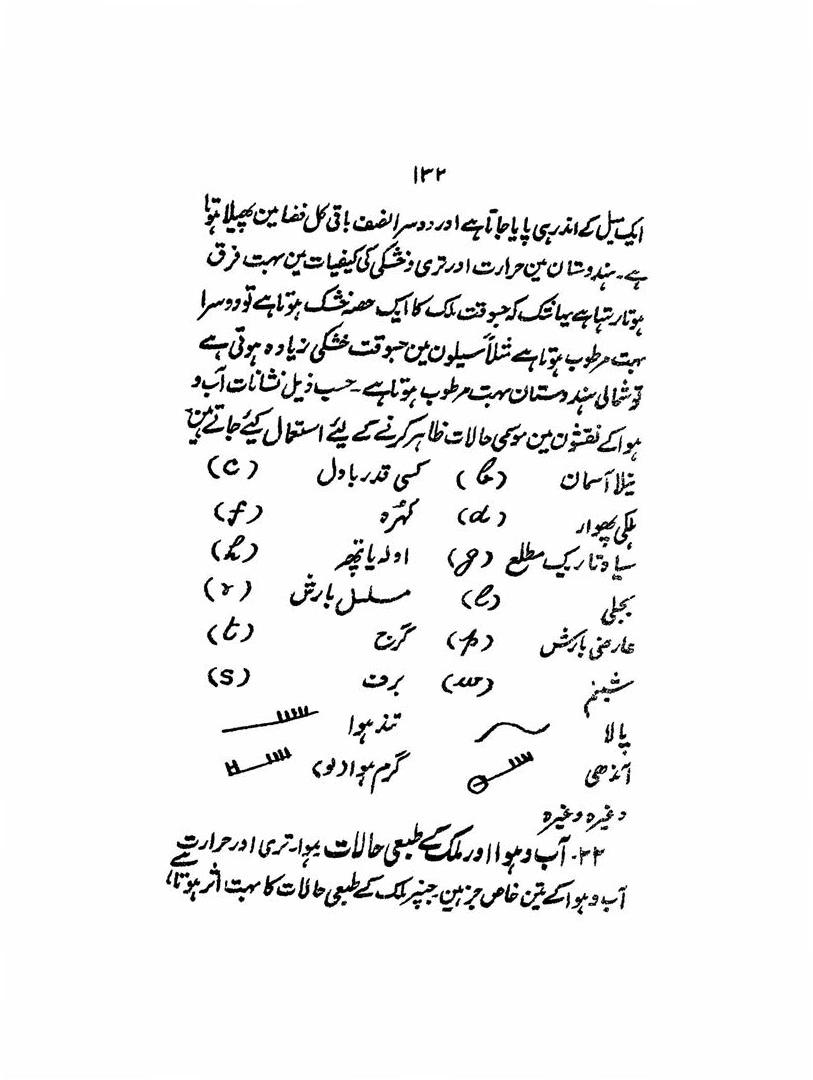 ۱۳۲
ایک میل کے اندر ہی پایا جاتا ہے اور دوسرا نصف باقی کل فضا مین پھیلا ہوتا
ہے۔ ہندوستان مین حرارت اور تری و خشکی کی کیفیات مین بہت فرق
ہوتا رہتا ہے یہانتک کہ جسوقت ملک کا ایک حصہ خشک ہوتا ہے تو دوسرا
بہت مرطوب ہوتا ہے مثلاً سیلون مین جسوقت خشکی زیادہ ہوتی ہے
تو شمالی ہندوستان بہت مرطوب ہوتا ہے۔ حسب ذیل نشانات آب و
ہوا کے نقشون مین موسمی حالات ظاہر کرنے کے لیئے استعمال کیئے جاتے ہین
نیلا آسمان (b) کسی قدر بادل (c)
ہلکی پھوار (d) کہرہ (f)
سیاہ تاریک مطلع (g) اولہ یا پتھر (h)
بجلی (l) مسلسل بارش (r)
عارضی بارش (p) گرج (t)
شبنم (w) برف (s)
پالا تند ہوا
آندھی گرم ہوا (لو)
وغیرہ وغیرہ
۳۳۔ آب و ہوا اور ملک کے طبعی حالات ہوا۔ تری اور حرارت سے
آب و ہوا کے تین خاص جز ہین۔ جنپر ملک کے طبعی حالات کا بہت اثر ہوتا،